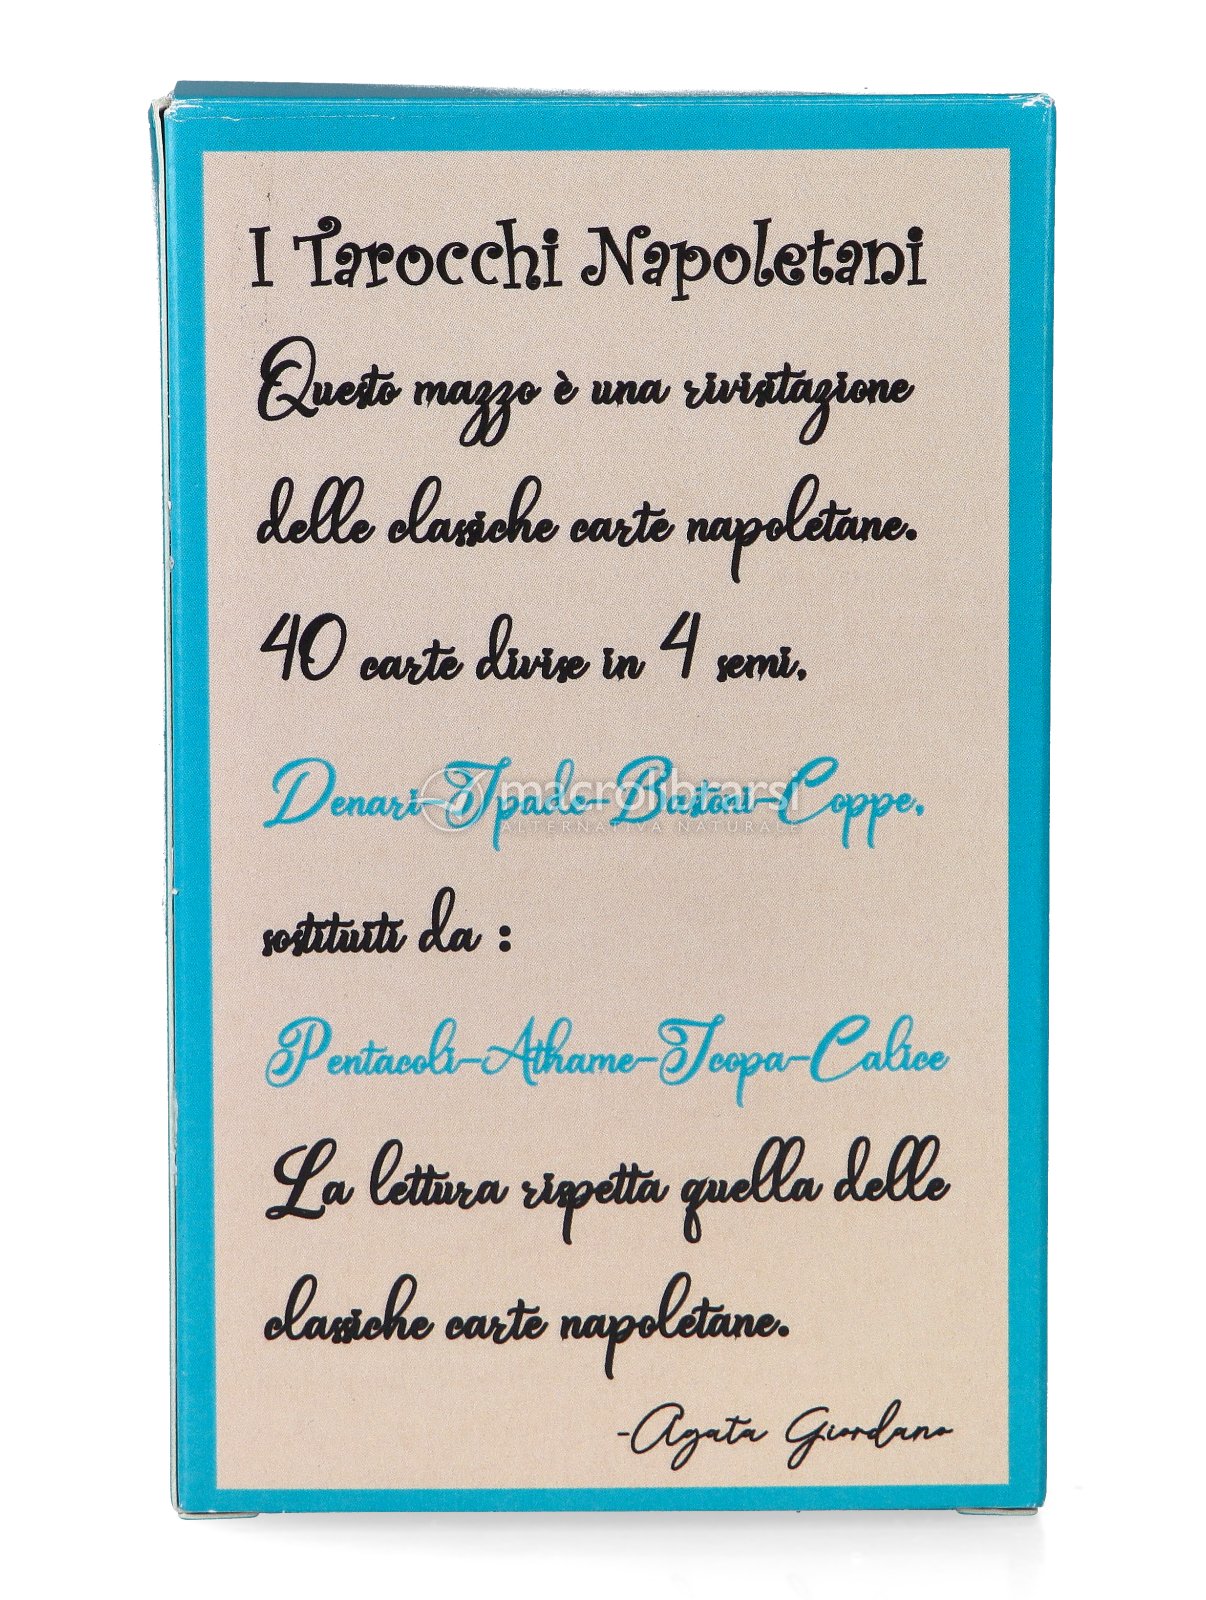 I Tarocchi Napoletani
Questo mazzo è una rivisitazione
delle classiche carte napoletane.
40 carte divise in 4 semi,
Denari-Spade-Bastoni-Coppe,
macrolibrarsi
ALTERNATIVA NATURALE
sostituiti da :
Pentacoli-Athame-Scopa-Calice
La lettura rispetta quella delle
classiche carte napoletane.
-Agata Giordano